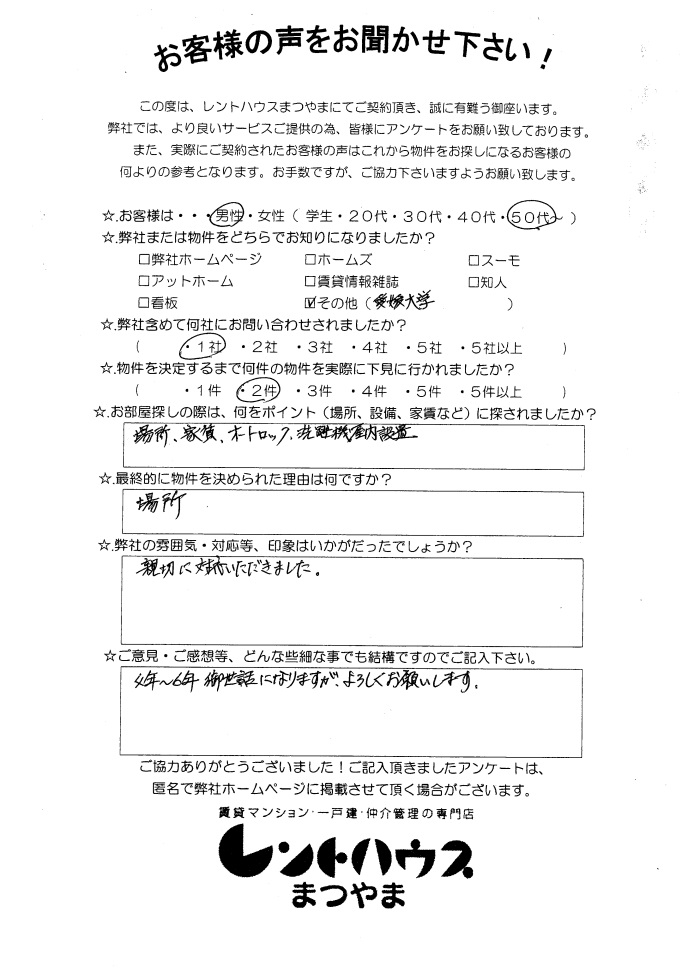 お客様の声をお聞かせ下さい！
この度は、レントハウスまつやまにてご契約頂き、誠に有難う御座います。
弊社では、より良いサービスご提供の為、皆様にアンケートをお願い致しております。
また、実際にご契約されたお客様の声はこれから物件をお探しになるお客様の
何よりの参考となります。お手数ですが、ご協力下さいますようお願い致します。
☆.お客様は・・・男性・女性（ 学生・２０代・３０代・４０代・５０代～ ）
☆.弊社または物件をどちらでお知りになりましたか？
□弊社ホームページ □ホームズ □スーモ
□アットホーム □賃貸情報雑誌 □知人
□看板 ☑その他（愛媛大学 ）
☆.弊社含めて何社にお問い合わせされましたか？
（ ・１社 ・２社 ・３社 ・４社 ・５社 ・５社以上 ）
☆.物件を決定するまで何件の物件を実際に下見に行かれましたか？
（ ・１件 ・２件 ・３件 ・４件 ・５件 ・５件以上 ）
☆.お部屋探しの際は、何をポイント（場所、設備、家賃など）に探されましたか？
場所、家賃、オートロック、洗濯機室内設置
☆.最終的に物件を決められた理由は何ですか？
場所
☆.弊社の雰囲気・対応等、印象はいかがだったでしょうか？
親切に対応いただきました。
☆ご意見・ご感想等、どんな些細な事でも結構ですのでご記入下さい。
4年～6年 御世話になりますが、よろしくお願いします。
ご協力ありがとうございました！ご記入頂きましたアンケートは、
匿名で弊社ホームページに掲載させて頂く場合がございます。
賃貸マンション・一戸建・仲介管理の専門店
レントハウス
まつやま